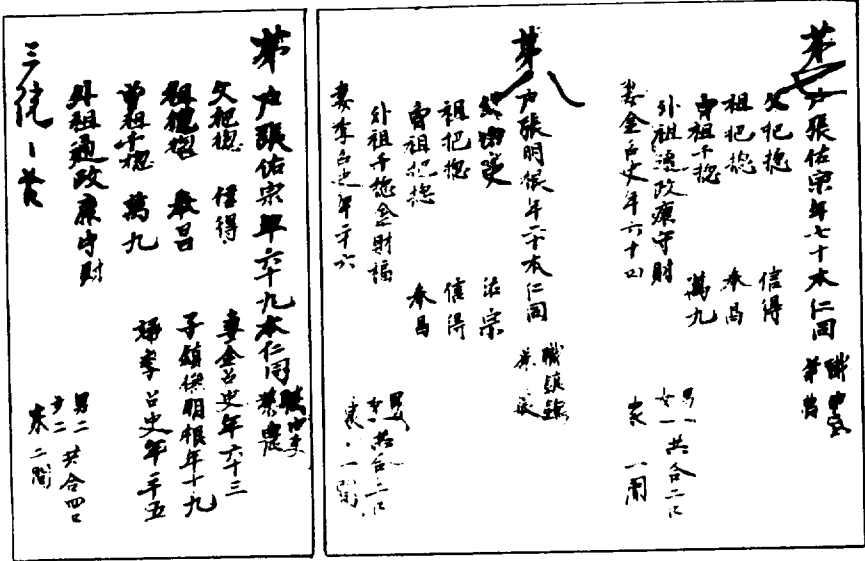 第 户張佑宗年七十本仁同
業農
父把摠 信得
祖把摠 奉昌
曾祖千摠 萬九
外祖通政康守財
妻金召史年六十四
男一
女一
共合二口
家一間
第八户張明根年二十本仁同
業農
佑宗
祖把摠 信得
曾祖把摠 奉昌
外祖千摠金財福
妻李召史年二十六
男一
女一
共合二口
家一間
第 户張佑宗年六十九本仁同
業農
父把摠 信得
祖把摠 奉昌
曾祖千摠 萬九
外祖通政康守財
妻金召史年六十三
子鎮撫明根年十九
婦李召史年二十五
男二
女二
共合四口
家二間
三統